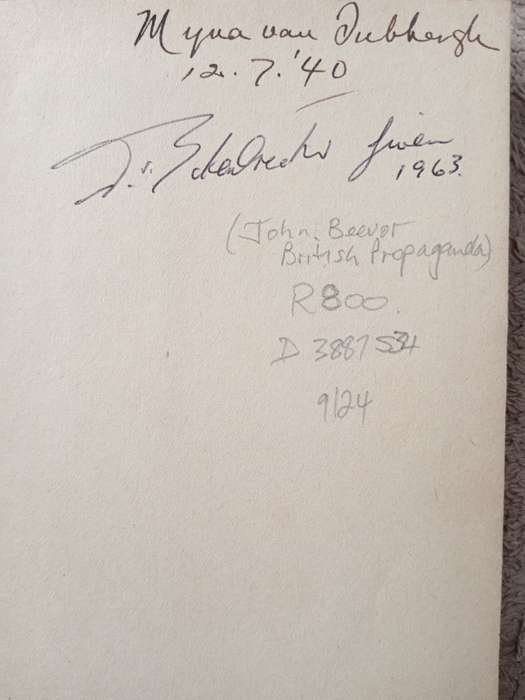 Myna van
12.7.'40
1963.
(John Beevor
British Propaganda)
R800.
D 3887534
9/24